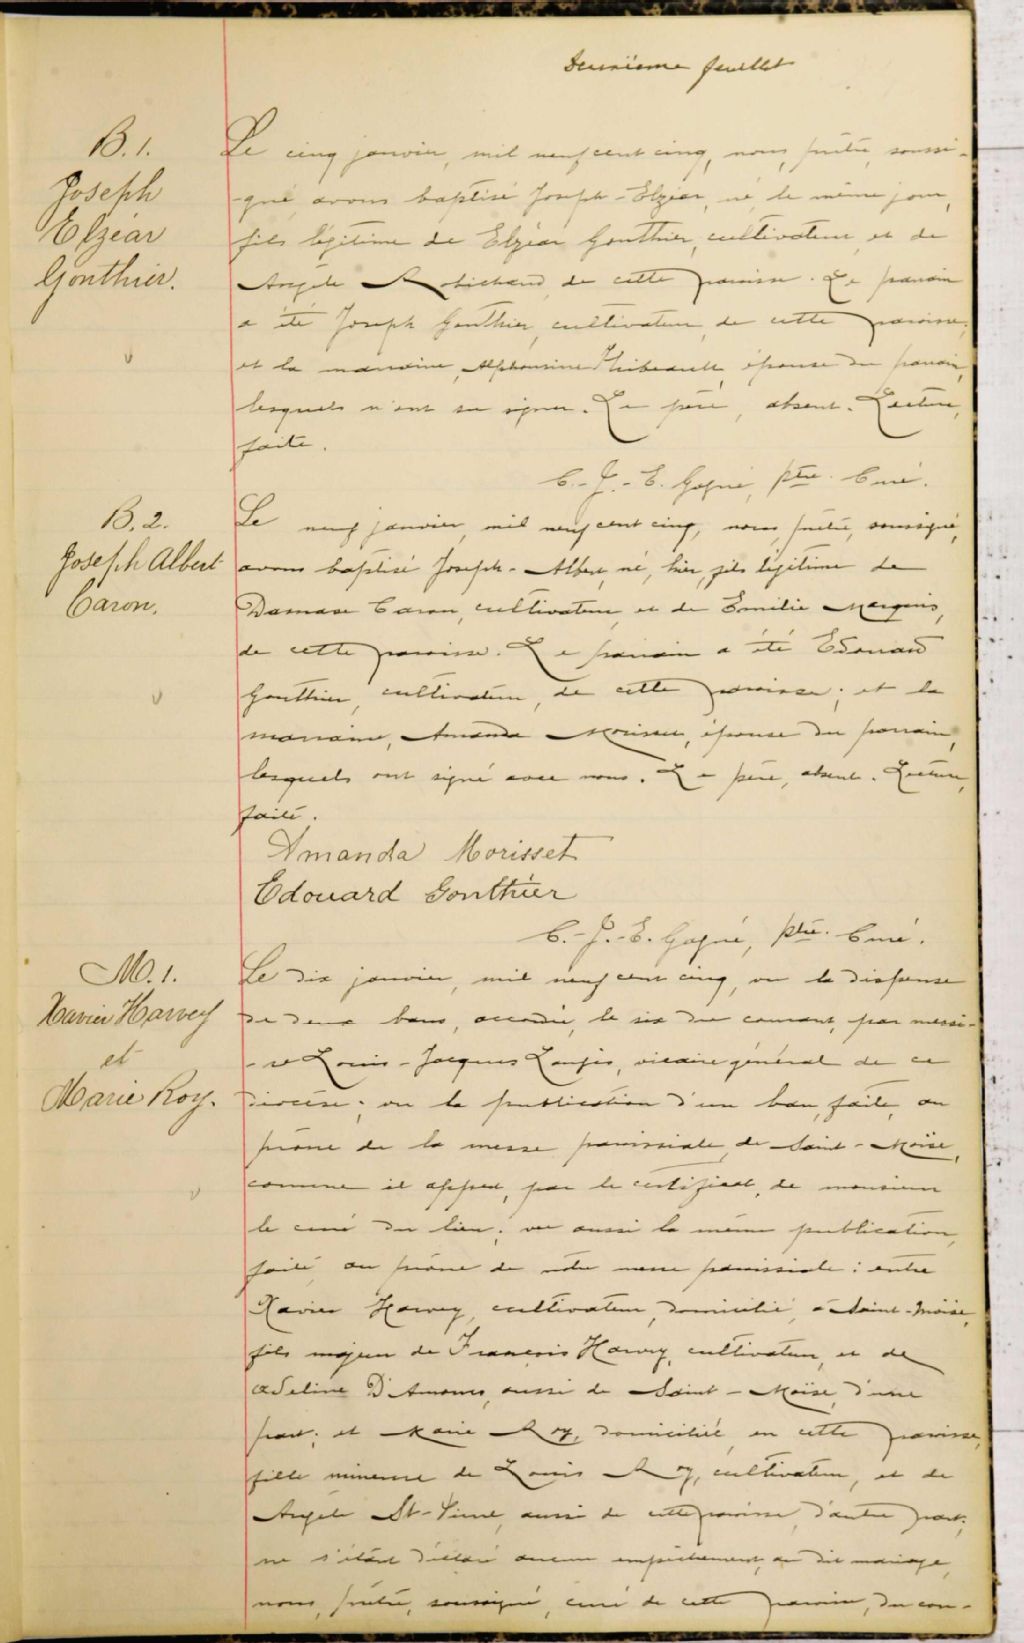 Deuxième feuillet
B. 1.
Joseph
Elzéar
Gonthier.
Le cinq janvier, mil neuf cent cinq, nous, prêtre, soussi-
-gné, avons baptisé Joseph-Elzéar, né, le même jour,
fils légitime de Elzéar Gonthier, cultivateur, et de
Angèle Robichaud, de cette paroisse. Le parrain
a été Joseph Gonthier, cultivateur, de cette paroisse;
et la marraine, Alphonsine Thibeault, épouse du parrain,
lesquels n'ont su signer. Le père, absent. Lecture,
faite.
C.-J.-E. Gagné, ptre. Curé.
B. 2.
Joseph Albert
Caron.
Le neuf janvier, mil neuf cent cinq, nous, prêtre, soussigné,
avons baptisé Joseph-Albert, né, hier, fils légitime de
Damase Caron, cultivateur, et de Emilie Marquis,
de cette paroisse. Le parrain a été Edouard
Gonthier, cultivateur, de cette paroisse; et la
marraine, Amanda Morisset, épouse du parrain,
lesquels ont signé avec nous. Le père, absent. Lecture,
faite.
Amanda Morisset
Edouard Gonthier
C.-J.-E. Gagné, ptre. Curé.
M. 1.
Xavier Harvey
et
Marie Roy.
Le dix janvier, mil neuf cent cinq, vu la dispense
de deux bans, accordée, le six du courant, par messi-
-re Louis-Jacques Langis, vicaire général de ce
diocèse; vu la publication d'un ban, faite, au
prône de la messe paroissiale, de Saint-Moïse,
comme il appert, par le certificat, de monsieur
le curé du lieu; vu aussi la même publication,
faite, au prône de notre messe paroissiale: entre
Xavier Harvey, cultivateur, domicilié, à Saint-Moïse,
fils majeur de François Harvey, cultivateur, et de
Adeline D'Amours, aussi de Saint-Moïse, d'une
part; et Marie Roy, domiciliée, en cette paroisse,
fille mineure de Louis Roy, cultivateur, et de
Angèle St-Pierre, aussi de cette paroisse, d'autre part;
ne s'étant déclaré aucun empêchement, au dit mariage,
nous, prêtre, soussigné, curé de cette paroisse, du con-